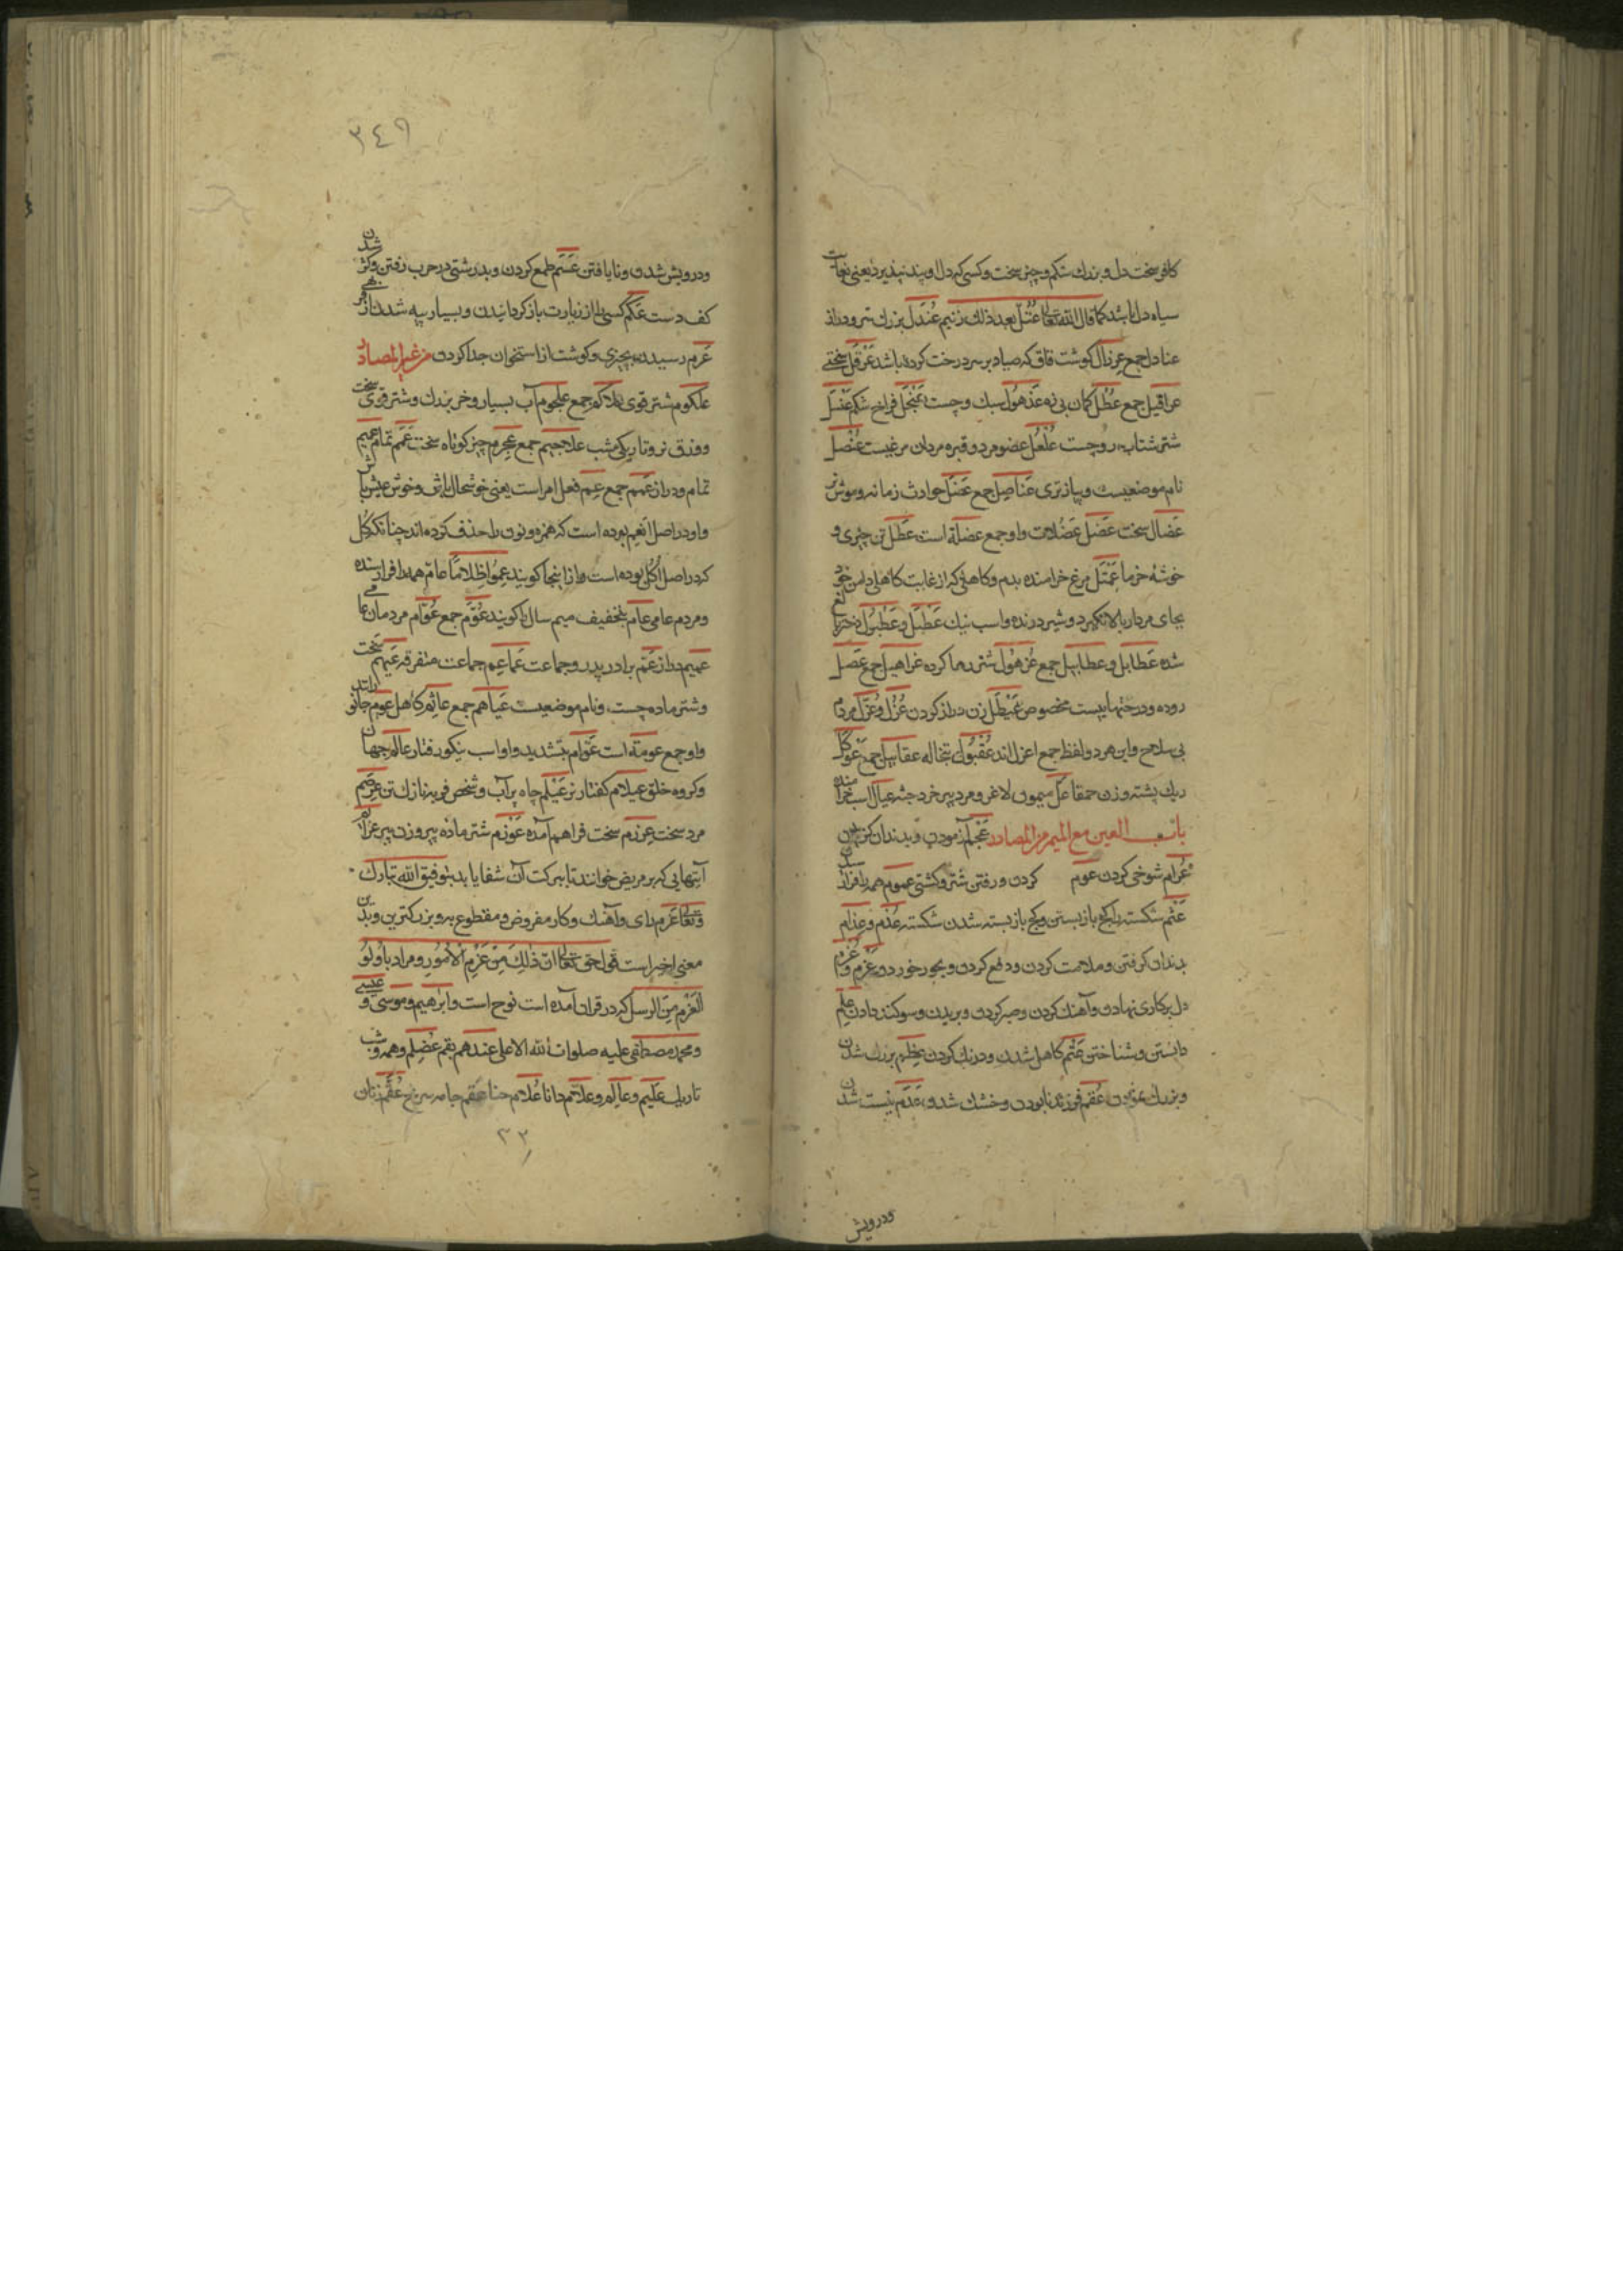 کافر سخت دل و بزرک شکم و چیز سخت و کسی که دل او پند نپذیرد یعنی بغایت
سیاه دل باشد کما قال الله تعالی عتل بعد ذلک زنیم عندل بزرک سر و دراز
عنادل جمع عرزال کوشت قاق که صیاد بر سر درخت کرده باشد عرقل سختی
عراقیل جمع عطل کمان بی زه عذهول سبک و چست عنجل فراخ شکم عنسل
شتر شتاب رو چست علعل عضو مرد و قبره مردان مرغیست عنصل
نام موضعیست و پیاز تری عناصل جمع عضل حوادث زمانه و موش نر
عضال سخت عضل عضلات و او جمع عضلة است عطل تن چیزی و
خوشه خرما عمثل مرغ خرامنده بدم و کاهلی که از غایت کاهلی دامن خود
بجای مردار بالا نکیرد و شیر درنده و اسب نیک عطبل و عطبول دختر بالغ
شده عطابل و عطابیل جمع عزهول شتر رها کرده عزاهیل جمع عصل
روده و درختهاییست مخصوص عیطل زن دراز کردن عزل و عزل مردم
بی سلاح و این هر دو لفظ جمع اعزل اند عقبول تبخاله عقابیل جمع عوکل
ریک پشته و زن حمقا عل میمون لاغر و مرد پیر خرد جثه عیال اسب خرامنده
باب العین مع المیم من المصادر عجم آزمودن و بدندان کزیدن
عرام شوخی کردن عوم کردن و رفتن شتر و کشتی عموم همه را فراز
عثم شکسته را کج باز بستن و کج باز بسته شدن شکسته عذم و عذام
بدندان کرفتن و ملامت کردن و دفع کردن و بجور خوردن عزم و
دل بر کاری نهادن و آهنک کردن و صبر کردن و بریدن و سوکند دادن علم
دانستن و شناختن عتم کاهل شدن و درنک کردن عظم بزرک شدن
و بزرک نمودن عقم فرزند نابودن و خشک شدن عدم نیست شدن
ودرویش
۳٤۹
و درویش شدن و نایافتن عسم طمع کردن و بدرشتی در حرب رفتن و کژ شدن
کف دست عکم کسی را از زیارت باز کردانیدن و بسیار پیه شدن از فربهی
عرم رسیدن بچیزی و کوشت از استخوان جدا کردن من غیر المصادر
علکوم شتر قوی علاکم جمع علجوم آب بسیار و خر بزرک و شتر قوی سخت
و وزق نر و تاریکی شب علاجیم جمع عجرم چیز کوتاه سخت عمم تمام عمیم
تمام و دراز عمم جمع عم فعل امر است یعنی خوشحال باش و خوش عیش باش
و او در اصل انعم بوده است که همزه و نون را حذف کرده اند چنانکه کل
که در اصل اُکل بوده است و از اینجا کویند عموا ظلاما عام همه را فرا رسنده
و مردم عامی عام بتخفیف میم سال را کویند عوم جمع عوام مردمان عامی
عمیم دراز عم برادر پدر و جماعت عماعم جماعت متفرقه عیهم سخت
و شتر ماده چست و نام موضعیست عیاهم جمع عاثم کاهل عوم جانوران
و او جمع عومة است عوام بتشدید واو اسب نیکو رفتار عالم جهان
و کروه خلق عیلام کفتار نر عیلم چاه پر آب و شخص فربه نازک تن عرصم
مرد سخت عرزم سخت فراهم آمده عوزم شتر ماده پیر و زن پیر عزائم
آیتهایی که بر مریض خوانند تا ببرکت آن شفا یابد بتوفیق الله تبارک
و تعالی عزم رای و آهنک و کار مفروض و مقطوع به و بزرکترین و بدین
معنی اخیر است قول حق تعالی ان ذلک من عزم الامور و مراد باولو
العزم من الرسل که در قرآن آمده است نوح است و ابراهیم و موسی و عیسی
و محمد مصطفی علیه صلوات الله الاعلی عندهم بقم عضلم و همه و شب
تاریک علیم و عالم و علام دانا علام حنا عقم جامه سرخ عقم زنان
۳۲